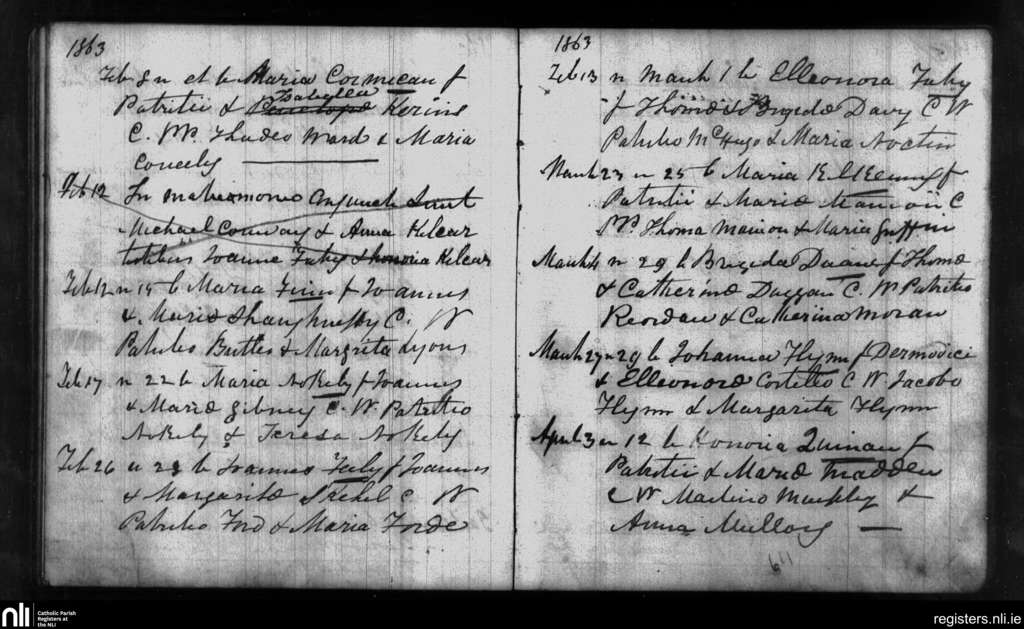 1863
Feb 8 n et b Maria Cormican f
Isabella
Patritii & Penelope Kerins
C. PP. Thadeo Ward & Maria
Coneely
Feb 12 In matrimonio conjuncti Sunt
Michael Conway & Anna Kilcar
testibus Joanne Fahy & honoria Kilcar
Feb 12 n 15 b Maria Finn f Joannis
& Mariæ Shaughnessy C. W
Patritio Butler & Margrita Lyons
Feb 17 n 22 b Maria f Joannis
& Mariæ Gibney C. W Patritio
& Teresa
Feb 26 n 28 b Joannes Fahy f Joannis
& Margaritæ C W
Patritio Ford & Maria Forde
1863
Feb 13 n March 1 b Elleonora Fahy
f Thomæ & Brigidæ Davy C W
Patritio McHugo & Maria Noctin
March 23 n 25 b Maria f
Patritii & Mariæ Mannion C
PP Thoma Mannion & Maria Griffin
March 24 n 29 b Brigida Duane f Thomæ
& Catherinæ Duggan C. W Patritio
Reordan & Catherina Moran
March 27 n 29 b Johanna Flynn f Dermodici
& Elleonoræ Costelloe C W Jacobo
Flynn & Margarita Flynn
April 3 n 12 b Honoria Quinan f
Patritii & Mariæ Madden
C W Martino Murphy &
Anna Mulloy
611
nli Catholic Parish
Registers at
the NLI
registers.nli.ie